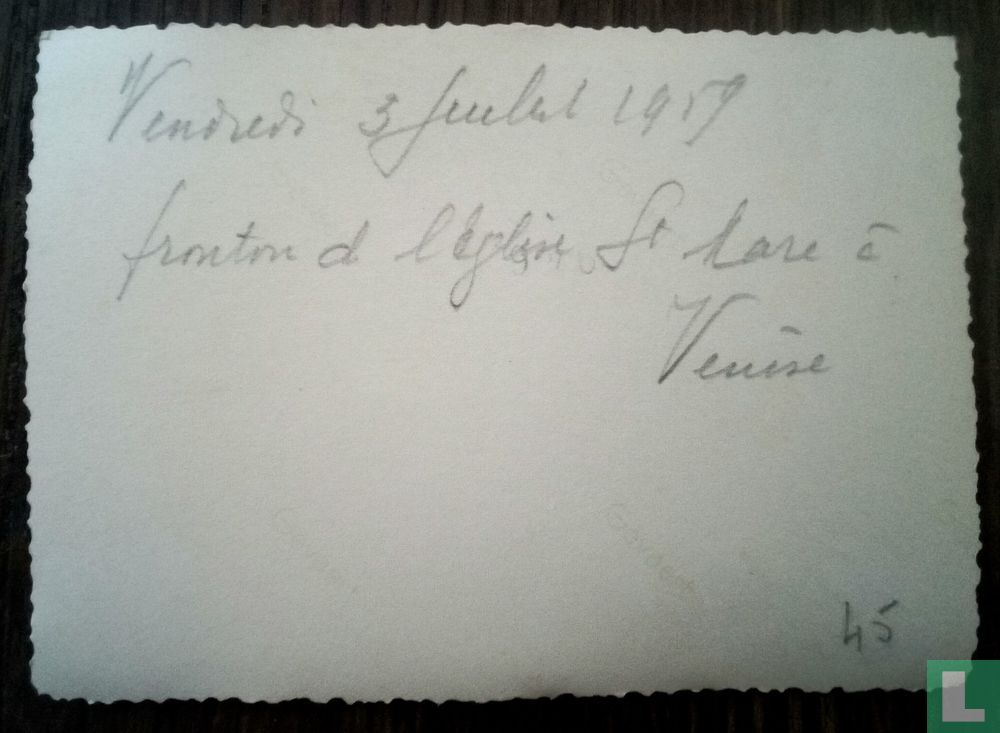 Vendredi 3 Juillet 1959
fronton d l'Église St Marc à
Venise
Gevaert
45
L